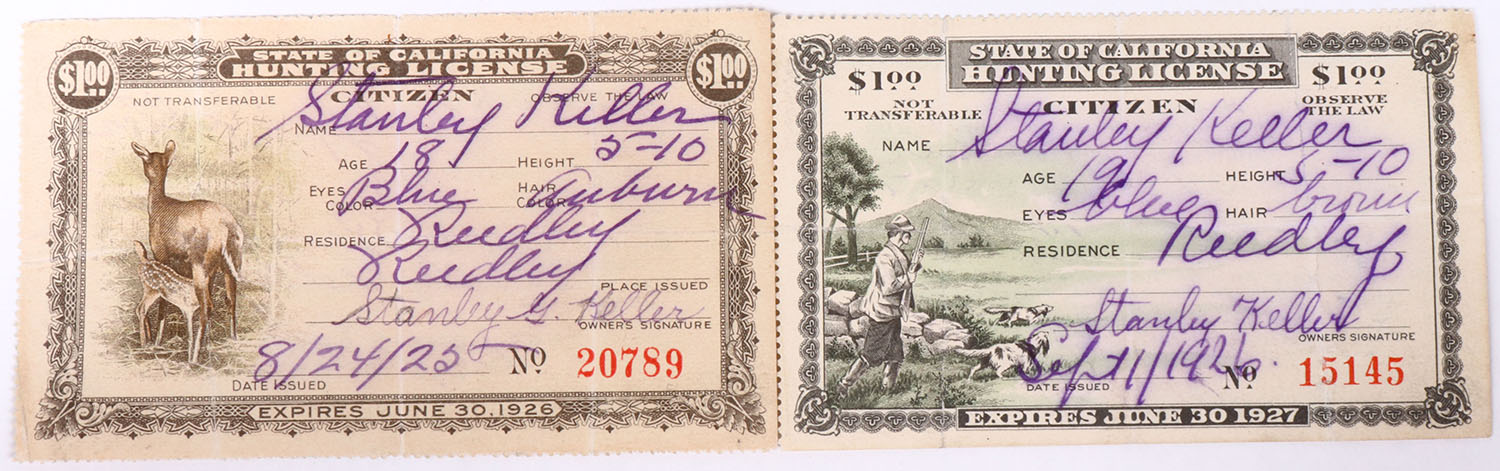 STATE OF CALIFORNIA
HUNTING LICENSE
$1.00 $1.00
NOT TRANSFERABLE CITIZEN OBSERVE THE LAW
NAME Stanley Keller
AGE 18 HEIGHT 5-10
EYES COLOR Blue HAIR COLOR Auburn
RESIDENCE Reedley
Reedley
PLACE ISSUED
Stanley G. Keller
OWNERS SIGNATURE
8/24/25 No 20789
DATE ISSUED
EXPIRES JUNE 30, 1926
STATE OF CALIFORNIA
HUNTING LICENSE
$1.00 $1.00
NOT TRANSFERABLE CITIZEN OBSERVE THE LAW
NAME Stanley Keller
AGE 19 HEIGHT 5-10
EYES blue HAIR brown
RESIDENCE Reedley
Stanley Keller
OWNERS SIGNATURE
Sept 1/1926. No 15145
DATE ISSUED
EXPIRES JUNE 30 1927